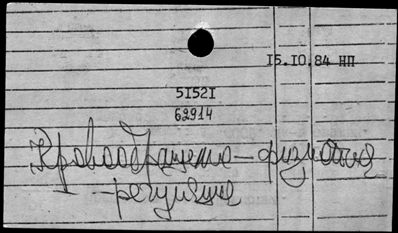 15.10.84 НП
51521
62914
Кровообращение – физиология
– регуляция